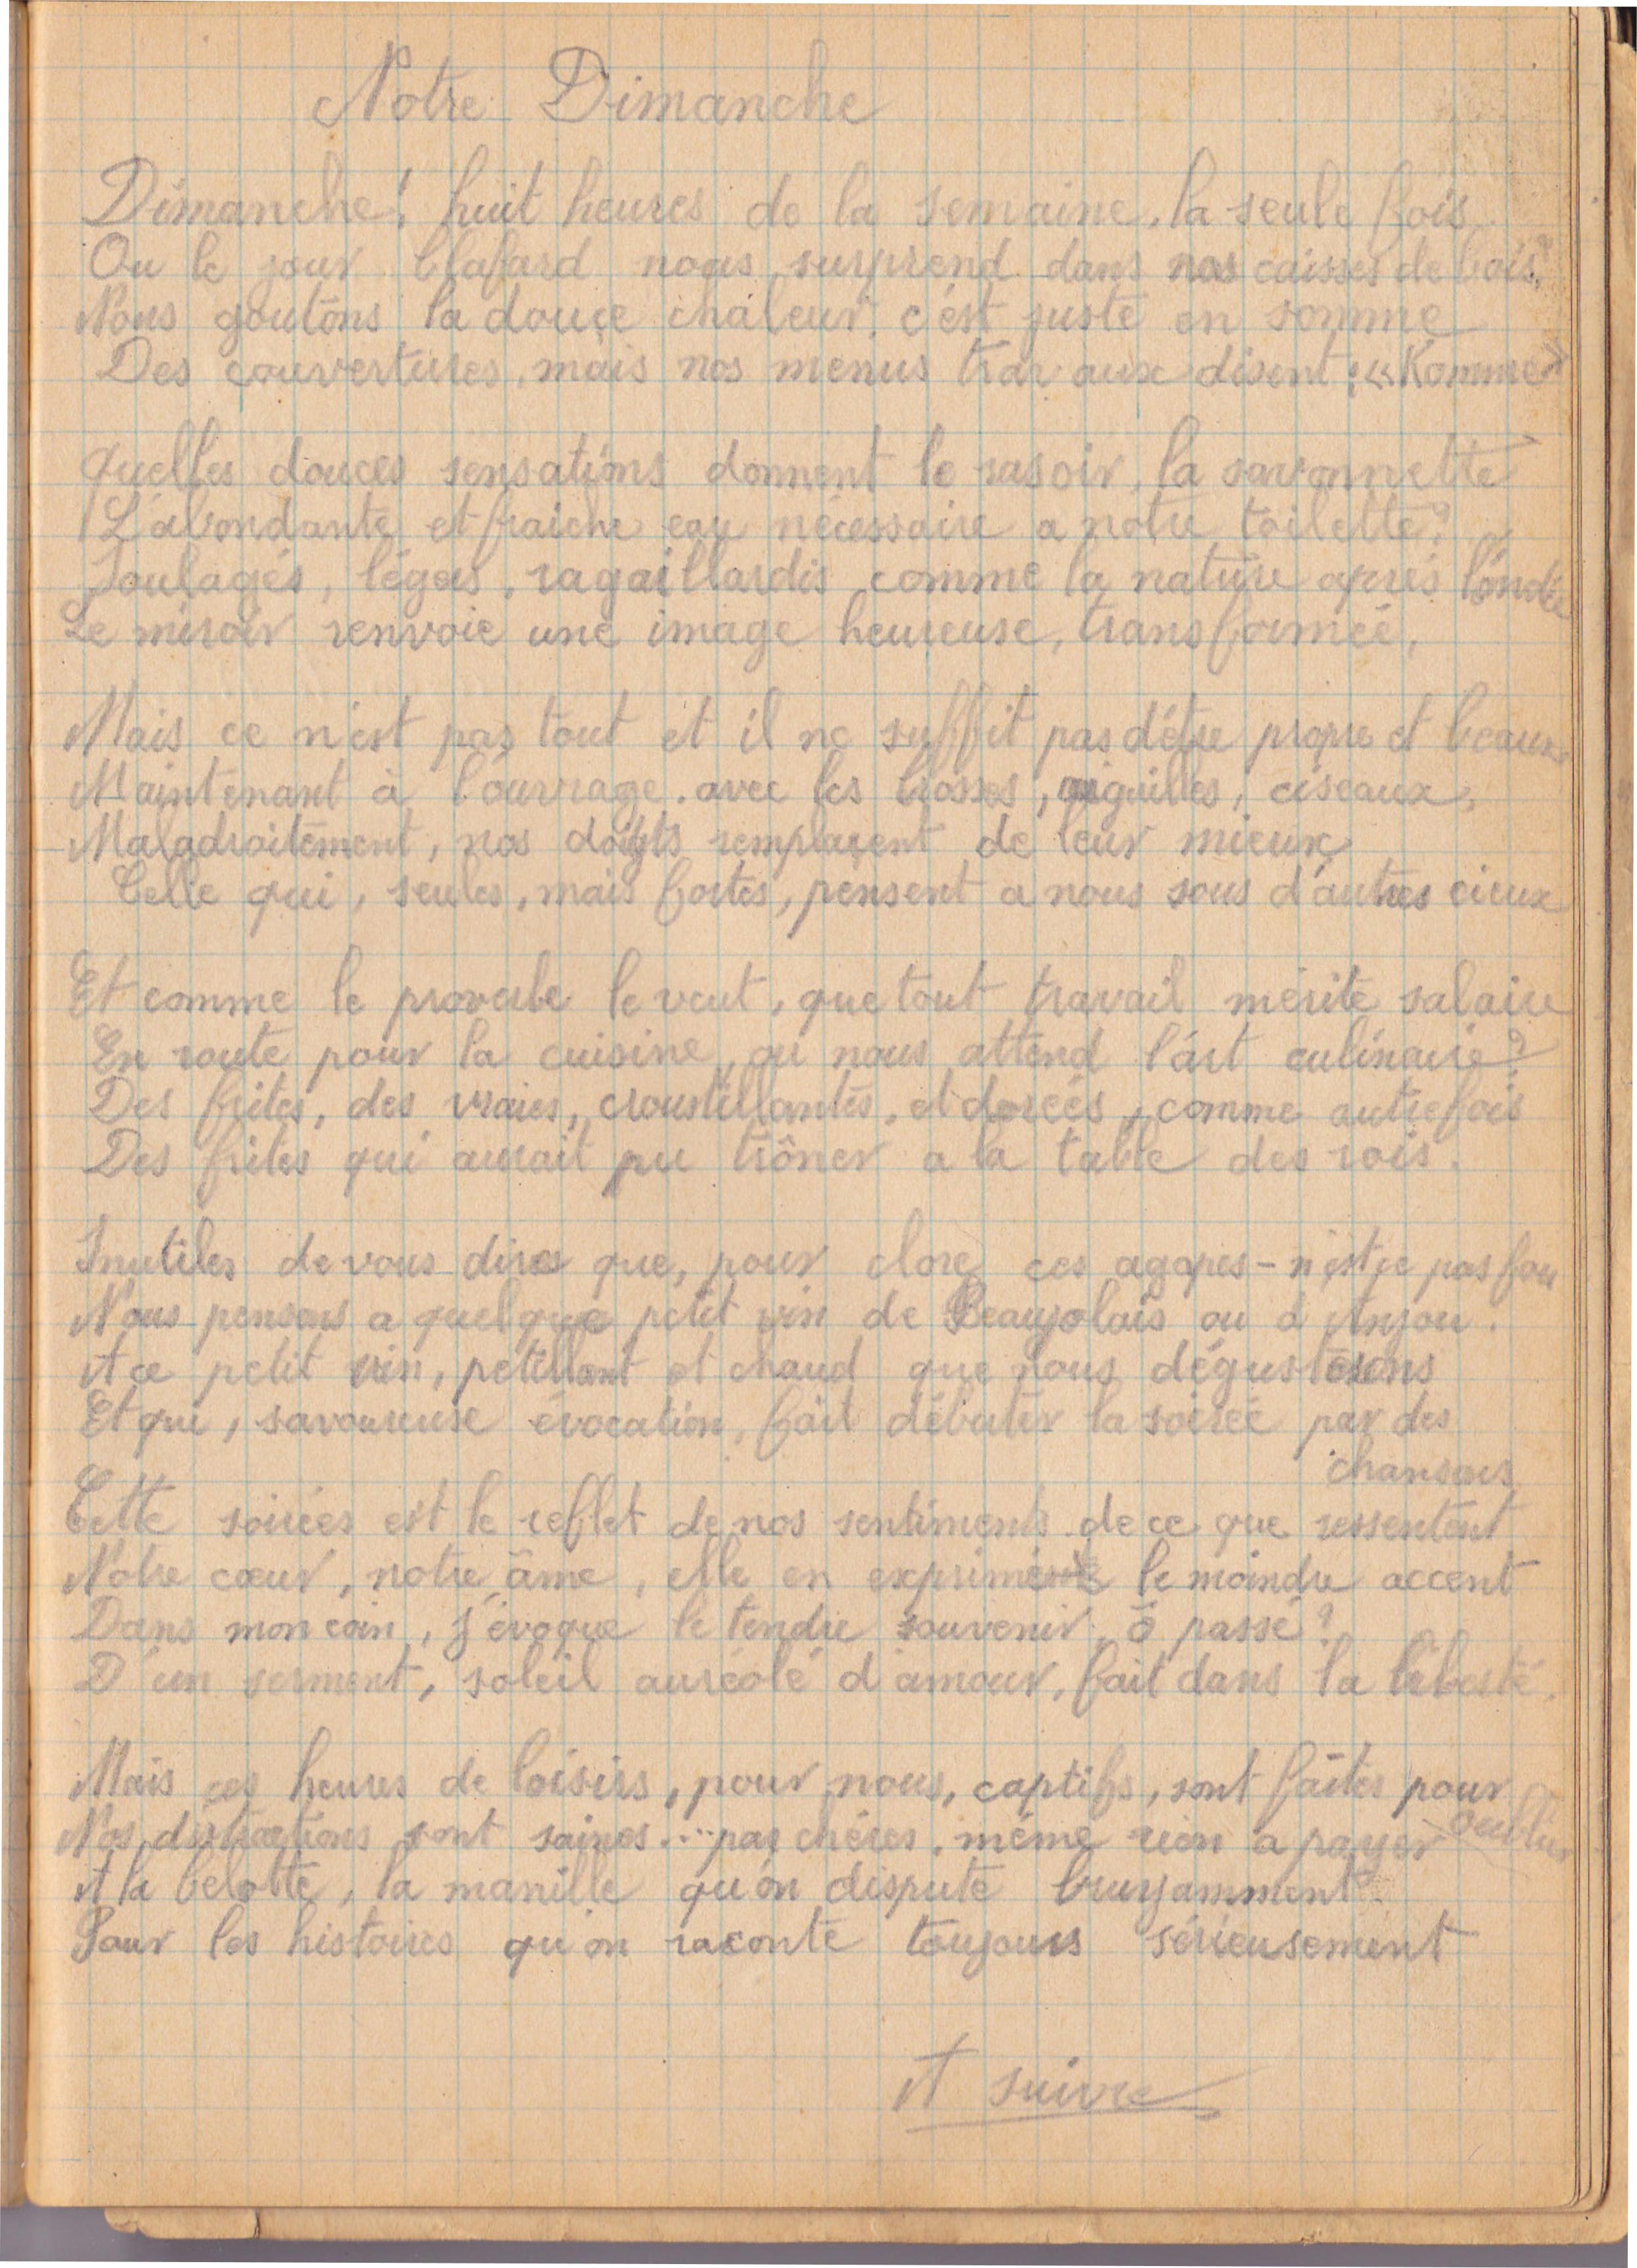 Notre Dimanche
Dimanche! huit heures de la semaine, la seule fois
Ou le jour blafard nous surprend dans nos caisses de bois,
Nous goutons la douce chaleur, c'est juste en somme
Des couvertures, mais nos menus travaux disent : « Komme »
Quelles douces sensations donnent le rasoir, la savonnette
L'abondante et fraiche eau nécessaire a notre toilette?
Soulagés, légers, ragaillardis comme la nature après l'ondée
Le miroir renvoie une image heureuse, transformée,
Mais ce n'est pas tout et il ne suffit pas d'être propre et beaux,
Maintenant à l'ouvrage. avec les brosses, aiguilles, ciseaux,
Maladroitement, nos doigts remplaçent de leur mieux
Celle qui, seules, mais fortes, pensent a nous sous d'autres cieux
Et comme le proverbe le veut, que tout travail mérite salaire
En route pour la cuisine, ou nous attend l'art culinaire?
Des frites, des vraies, croustillantes, et dorées, comme autrefois
Des frites qui aurait pu trôner a la table des rois.
Inutiles de vous dires que, pour clore ces agapes - n'est ce pas fou
Nous pensons a quelque petit vin de Beaujolais ou d'Anjou.
A ce petit vin, petillant et chaud que nous dégusterons
Et qui, savoureuse évocation, fait débuter la soirée par des
chansons
Cette soirées est le reflet de nos sentiments de ce que ressentent
Notre cœur, notre âme, elle en exprime le moindre accent
Dans mon coin, j'évoque le tendre souvenir, ô passé?
D'un serment, soleil auréolé d'amour, fait dans la liberté.
Mais ces heures de loisirs, pour nous, captifs, sont faites pour
oublier
Nos distractions sont saines... pas chères, même rien a payer
A la belotte, la manille qu'on dispute bruyamment
Pour les histoires qu'on raconte toujours sérieusement
A suivre